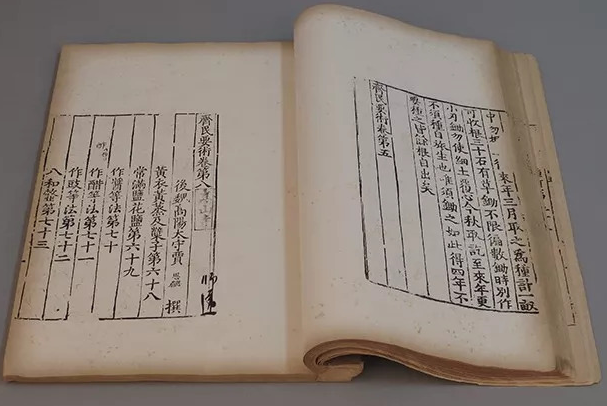 中勿 來年三月取之爲種計一畝
可收根三十石有草鋤不限徧數鋤時別作
小刃鋤勿使細土復心今秋取訖至來年更
不須種自旅生也唯須鋤之如此得四年不
要種之皆餘根自出矣
齊民要術卷第五
齊民要術卷第八
後魏高陽太守賈思勰撰
黃衣黃蒸及糵子第六十八
常滿鹽花鹽第六十九
作醬等法第七十
作醋等法第七十一
作豉等法第七十二
八和虀第七十三